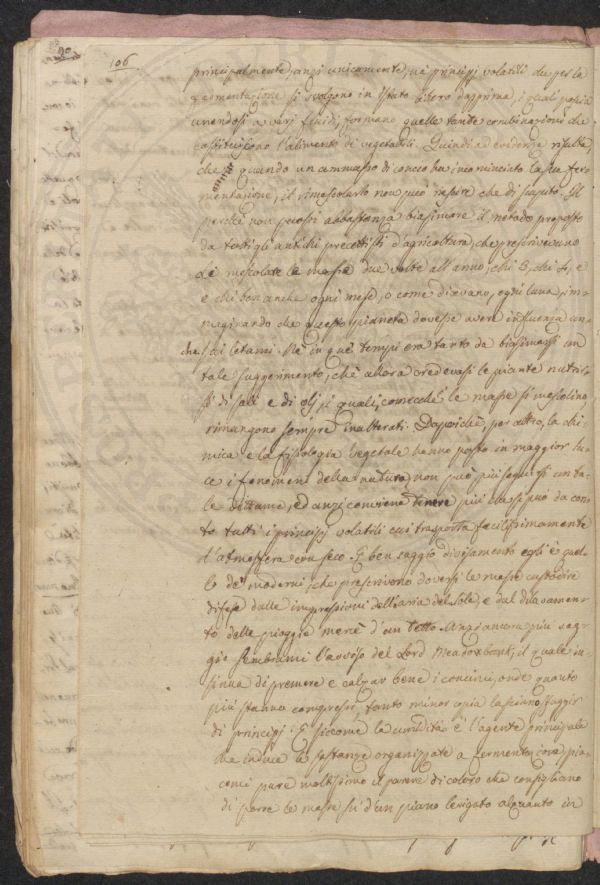 106
principalmente, anzi unicamente, ne' principj volatili che per la
fermentazione si svolgono in istato libero dapprima, i quali poscia
unendosi a varj fluidi, formano quelle tante combinazioni che
costituiscono l'alimento de' vegetabili. Quindi ad evidenza risulta,
che quando un ammasso di concio ha incominciato la sua fer-
mentazione, il rimescolarlo non può essere che di scapito. Il
perchè non puossi abbastanza biasimare il metodo proposto
da tutti gli antichi precettisti d'agricoltura, che prescrivevano
di mescolare le masse due volte all'anno, chi 3, chi 4, e
e chi ben anche ogni mese, o come dicevano, ogni luna, im-
maginando che questo pianeta dovesse avere influenza an-
che sui letami. Nè in que' tempi era tanto da biasimarsi un
tale suggerimento, chè allora credevasi le piante nutrir-
si di sali e di olj, i quali, comecchè le masse si mescolino
rimangono sempre inalterati. Dapoichè, per altro, la chi-
mica e la fisiologia vegetale hanno posto in maggior lu-
ce i fenomeni della natura, non può più seguirsi un ta-
le dettame, ed anzi conviene tenere più che si può da con-
to tutti i principj volatili cui trasporta facilissimamente
l'atmosfera con seco. E ben saggio divisamento egli è quel-
lo de' moderni, che prescrivono doversi le masse custodire
difese dalle impressioni dell'aria del sole, e dal dilavamen-
to delle piogge mercè d'un tetto. Anzi ancora più sag-
gio sembrami l'avviso del Lord Meadowbank, il quale in-
sinua di premere e calcar bene i concimi, onde quanto
più stanno compressi, tanto minor copia lasciano sfuggir
di principj. E siccome la umidità è l'agente principale
che induce le sostanze organizzate a fermento, così pia-
cemi pure moltissimo il parere di coloro che consigliano
di porre le masse su d'un piano levigato alquanto in